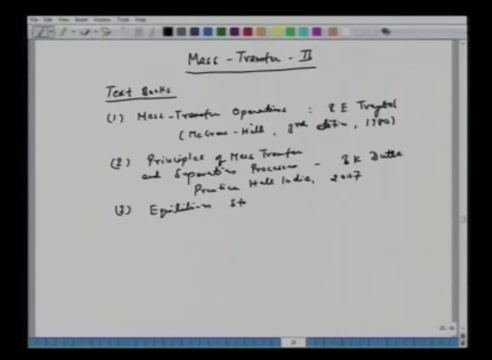 Mass-Transfer-II
Text Books
(1) Mass-Transfer Operations : R E Treybal
(McGraw-Hill, 3rd edition, 1980)
(2) Principles of Mass Transfer
and Separation Processes - B K Dutta
Prentice Hall India, 2007
(3) Equilibrium St